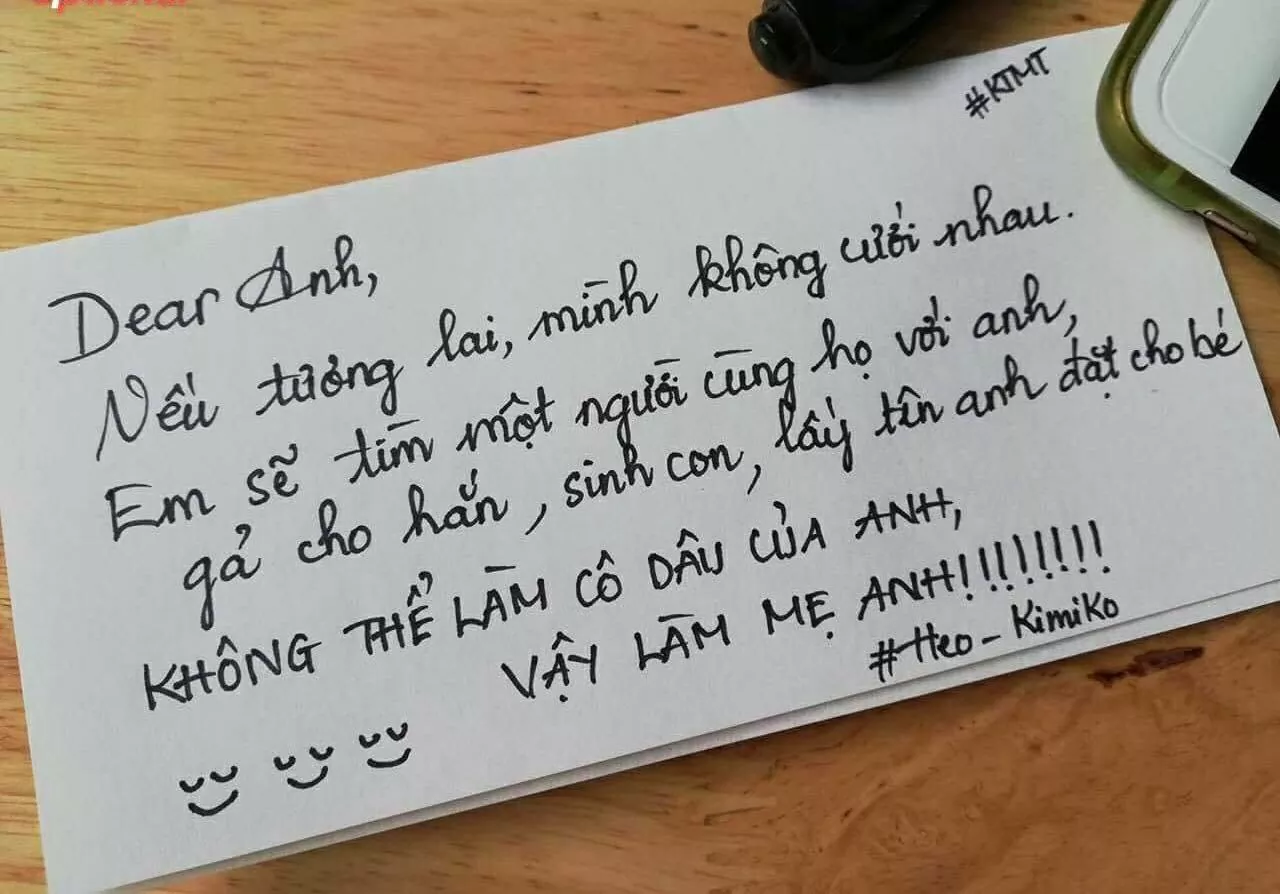 #KTMT
Dear Anh,
Nếu tương lai, mình không cưới nhau.
Em sẽ tìm một người cùng họ với anh,
gả cho hắn, sinh con, lấy tên anh đặt cho bé
KHÔNG THỂ LÀM CÔ DÂU CỦA ANH,
VẬY LÀM MẸ ANH!!!!!!!!
#Heo_KimiKo